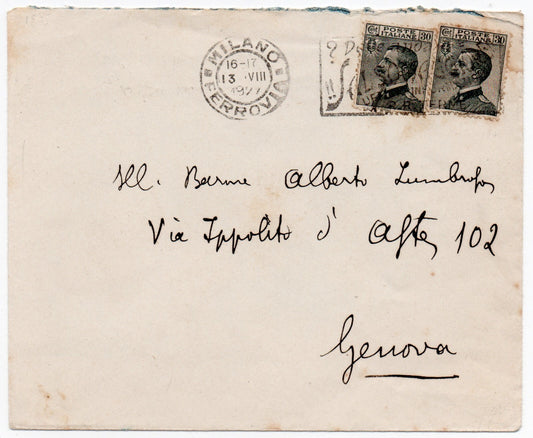 MILANO
16-17
13 ·VIII
1927
FERROVIA
POSTE ITALIANE 30
POSTE ITALIANE 30
Ill. Barone Alberto Lumbroso
Via Ippolito d' Aste, 102
Genova